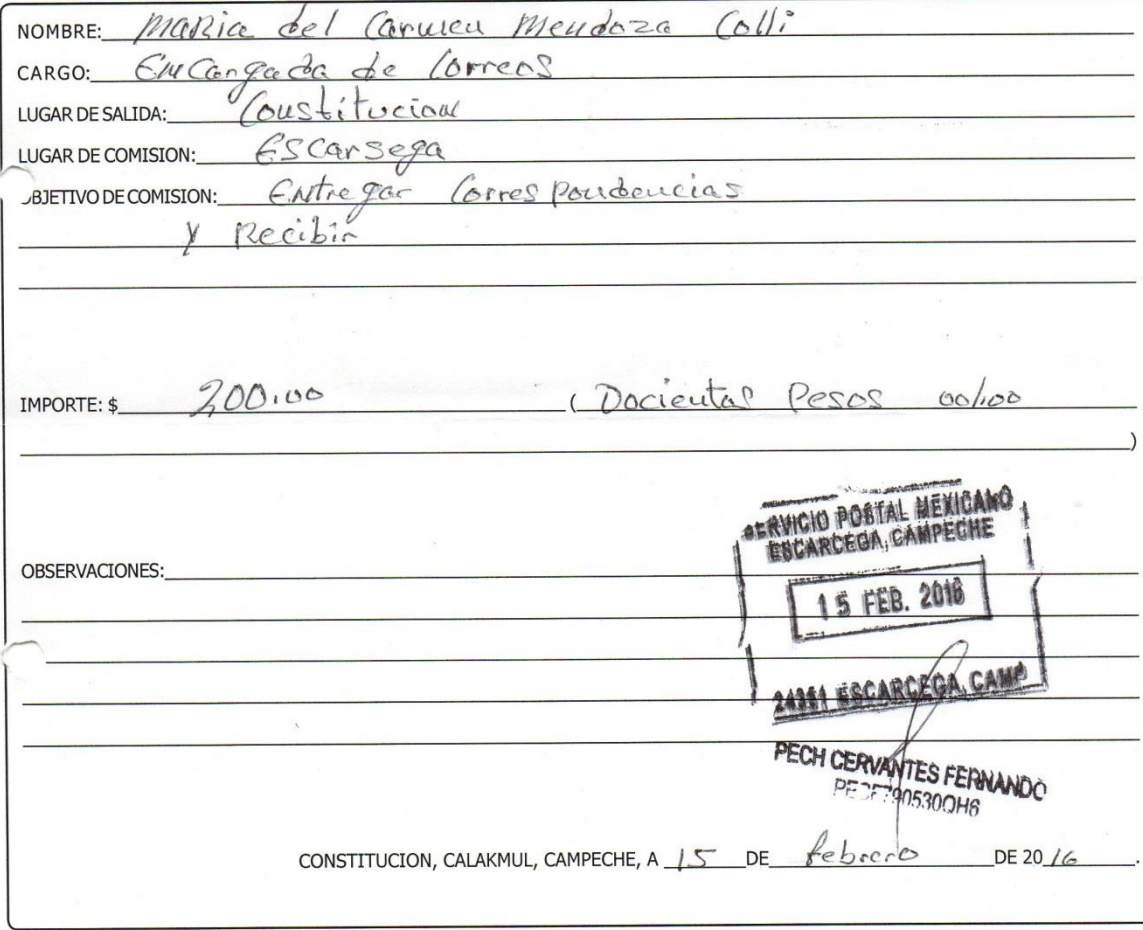 NOMBRE: Maria del Carmen Mendoza Colli
CARGO: Encargada de Correos
LUGAR DE SALIDA: Constitucion
LUGAR DE COMISION: Escarsega
OBJETIVO DE COMISION: Entregar Correspondencias
y Recibir
IMPORTE: $ 200.00 ( Docientas Pesos 00/100
)
SERVICIO POSTAL MEXICANO
ESCARCEGA, CAMPECHE
OBSERVACIONES:
15 FEB. 2016
24351 ESCARCEGA, CAMP
PECH CERVANTES FERNANDO
790530QH6
CONSTITUCION, CALAKMUL, CAMPECHE, A 15 DE febrero DE 2016.